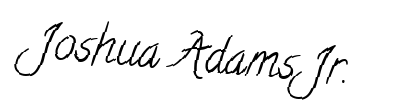 Joshua Adams Jr.